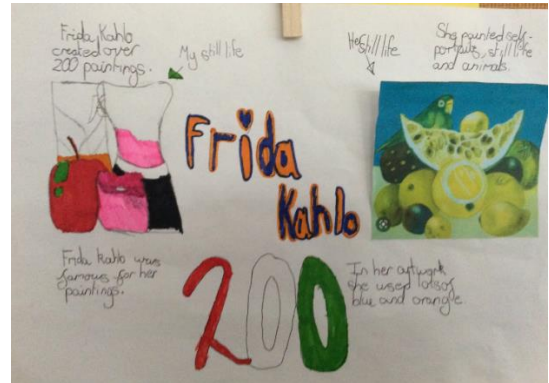 Frida Kahlo
created over
200 paintings.
My still life
Her Still life
She painted self-
portraits, still life
and animals.
Frida
Kahlo
Frida Kahlo was
famous for her
paintings.
200
In her artwork
she used lots of
blue and orange.